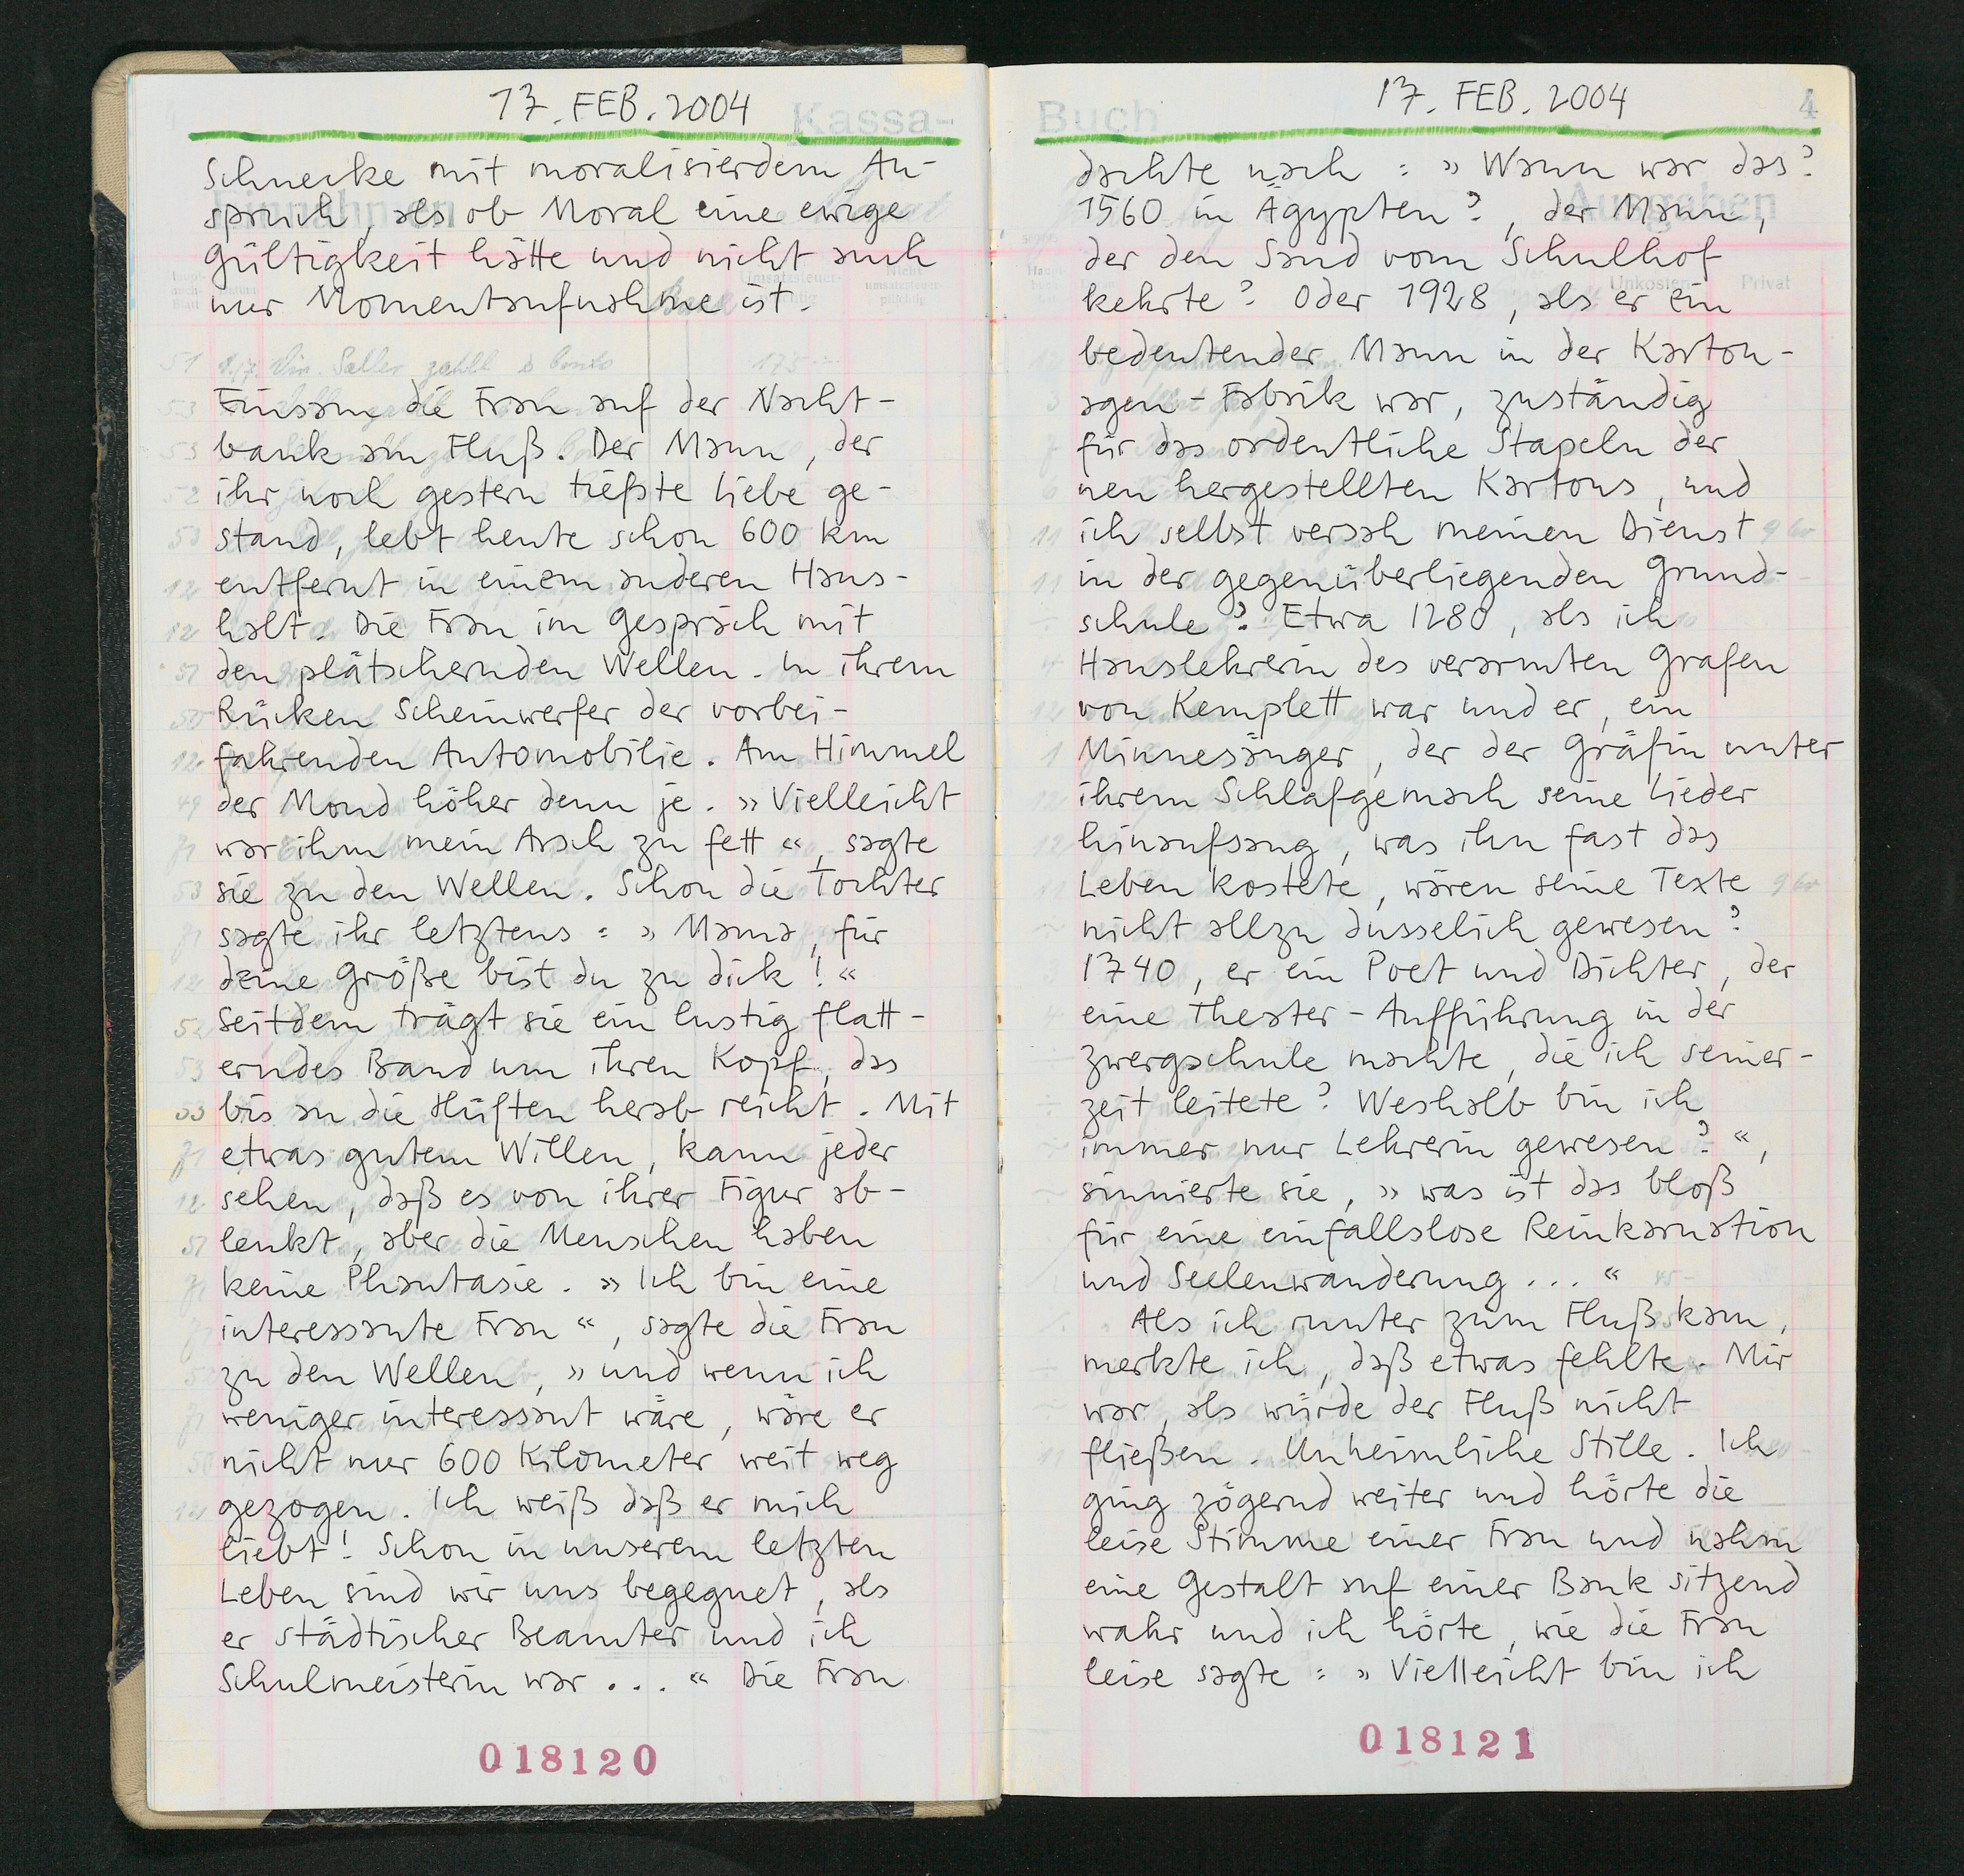 17. FEB. 2004
Kassa-
Schnecke mit moralisierdem An-
spruch, als ob Moral eine ewige
Gültigkeit hätte und nicht auch
nur Momentaufnahme ist.
Einsam die Frau auf der Nacht-
bank am Fluß. Der Mann, der
ihr noch gestern tiefste Liebe ge-
stand, lebt heute schon 600 km
entfernt in einem anderen Haus-
halt. Die Frau im Gespräch mit
den plätschernden Wellen. In ihrem
Rücken Scheinwerfer der vorbei-
fahrenden Automobilie. Am Himmel
der Mond höher denn je. »Vielleicht
war ihm mein Arsch zu fett«, sagte
sie zu den Wellen. Schon die Tochter
sagte ihr letztens: »Mama, für
deine Größe bist du zu dick!«
Seitdem trägt sie ein lustig flatt-
erndes Band um ihren Kopf, das
bis an die Hüften herab reicht. Mit
etwas gutem Willen, kann jeder
sehen, daß es von ihrer Figur ab-
lenkt, aber die Menschen haben
keine Phantasie. »Ich bin eine
interessante Frau«, sagte die Frau
zu den Wellen, »und wenn ich
weniger interessant wäre, wäre er
nicht nur 600 Kilometer weit weg
gezogen. Ich weiß daß er mich
liebt! Schon in unserem letzten
Leben sind wir uns begegnet, als
er städtischer Beamter und ich
Schulmeisterin war...« Die Frau
018120
17. FEB. 2004
Buch
4
dachte nach: »Wann war das?
1560 in Ägypten?, der Mann,
der den Sand vom Schulhof
kehrte? Oder 1928, als er ein
bedeutender Mann in der Karton-
agen-Fabrik war, zuständig
für das ordentliche Stapeln der
neu hergestellten Kartons, und
ich selbst versah meinen Dienst
in der gegenüberliegenden Grund-
schule? Etwa 1280, als ich
Hauslehrerin des verarmten Grafen
von Kemplett war und er, ein
Minnesänger, der der Gräfin unter
ihrem Schlafgemach seine Lieder
hinaufsang, was ihn fast das
Leben kostete, wären seine Texte
nicht allzu dusselich gewesen?
1740, er ein Poet und Dichter, der
eine Theater-Aufführung in der
Zwergschule machte, die ich seiner-
zeit leitete? Weshalb bin ich
immer nur Lehrerin gewesen?«,
sinnierte sie, »was ist das bloß
für eine einfallslose Reinkarnation
und Seelenwanderung...«
Als ich runter zum Fluß kam,
merkte ich, daß etwas fehlte. Mir
war, als würde der Fluß nicht
fließen. Unheimliche Stille. Ich
ging zögernd weiter und hörte die
leise Stimme einer Frau und nahm
eine Gestalt auf einer Bank sitzend
wahr und ich hörte, wie die Frau
leise sagte: »Vielleicht bin ich
018121